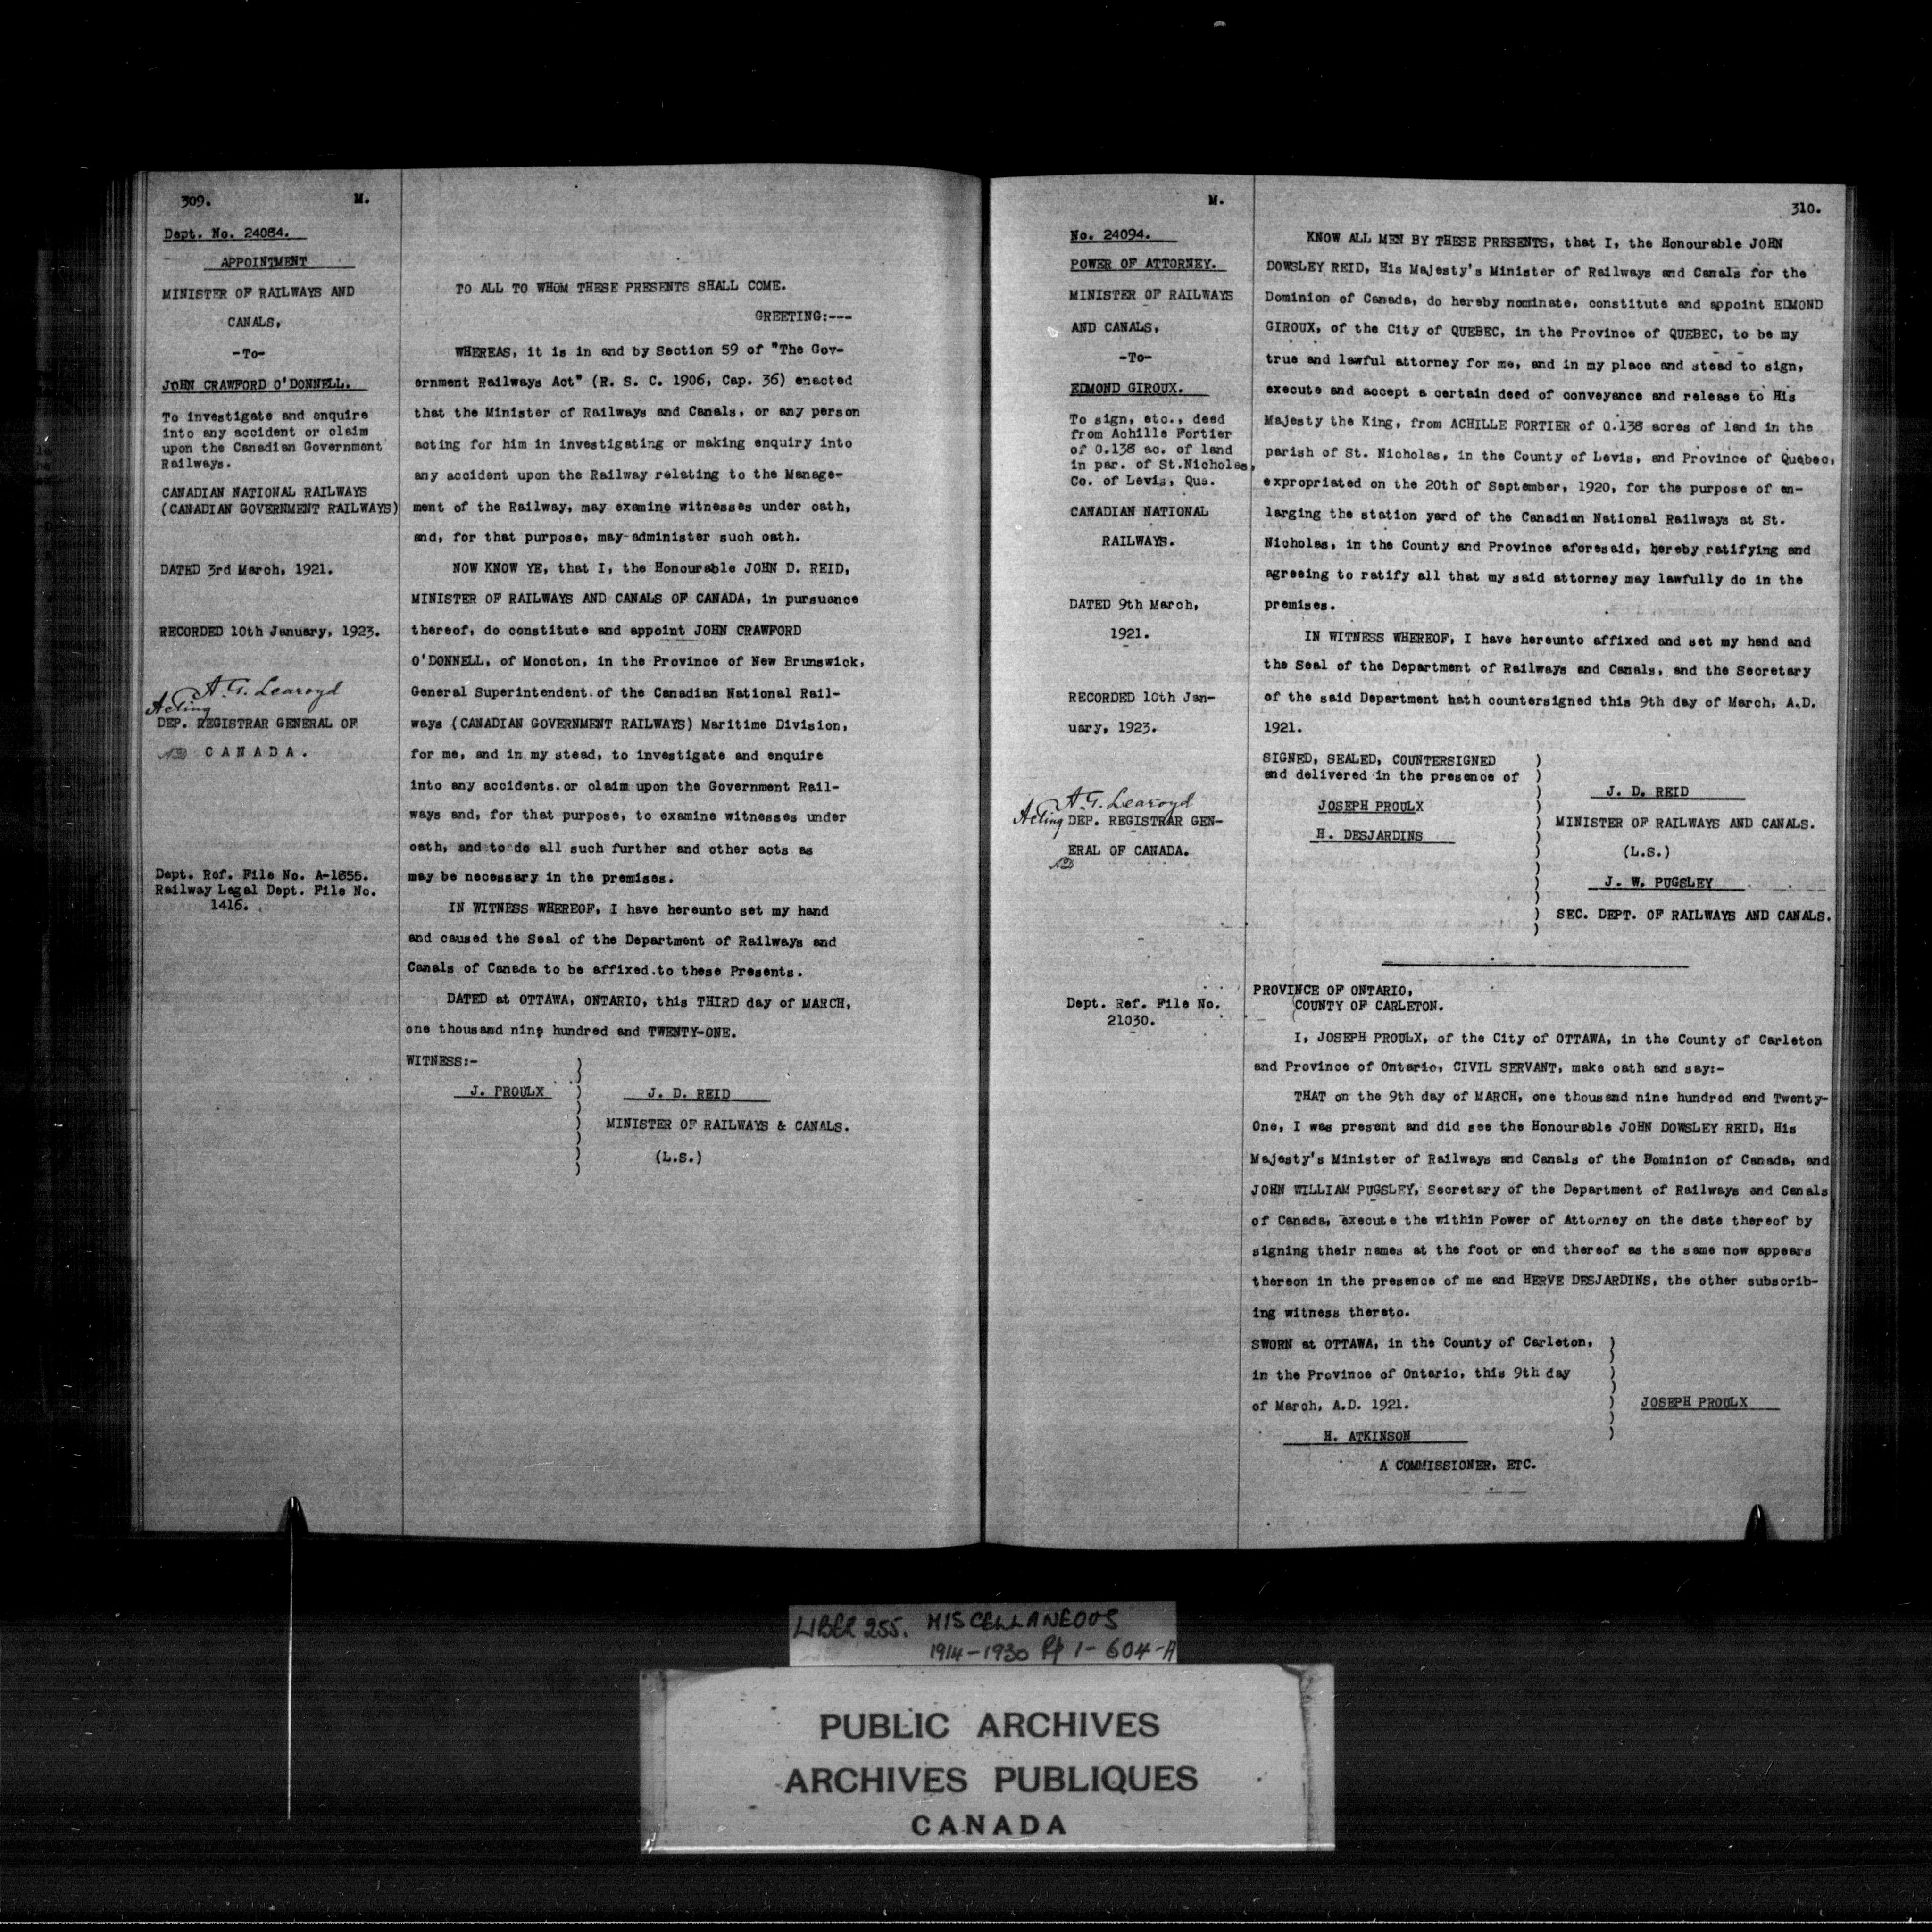 309. M.
Dept. No. 24084.
APPOINTMENT
MINISTER OF RAILWAYS AND
CANALS,
-To-
JOHN CRAWFORD O'DONNELL.
To investigate and enquire
into any accident or claim
upon the Canadian Government
Railways.
CANADIAN NATIONAL RAILWAYS
(CANADIAN GOVERNMENT RAILWAYS)
DATED 3rd March, 1921.
RECORDED 10th January, 1923.
A. G. Learoyd
Acting
DEP. REGISTRAR GENERAL OF
CANADA.
Dept. Ref. File No. A-1855.
Railway Legal Dept. File No.
1416.
TO ALL TO WHOM THESE PRESENTS SHALL COME.
GREETING:---
WHEREAS, it is in and by Section 59 of "The Gov-
ernment Railways Act" (R. S. C. 1906, Cap. 36) enacted
that the Minister of Railways and Canals, or any person
acting for him in investigating or making enquiry into
any accident upon the Railway relating to the Manage-
ment of the Railway, may examine witnesses under oath,
and, for that purpose, may administer such oath.
NOW KNOW YE, that I, the Honourable JOHN D. REID,
MINISTER OF RAILWAYS AND CANALS OF CANADA, in pursuance
thereof, do constitute and appoint JOHN CRAWFORD
O'DONNELL, of Moncton, in the Province of New Brunswick,
General Superintendent of the Canadian National Rail-
ways (CANADIAN GOVERNMENT RAILWAYS) Maritime Division,
for me, and in my stead, to investigate and enquire
into any accidents or claim upon the Government Rail-
ways and, for that purpose, to examine witnesses under
oath, and to do all such further and other acts as
may be necessary in the premises.
IN WITNESS WHEREOF, I have hereunto set my hand
and caused the Seal of the Department of Railways and
Canals of Canada to be affixed to these Presents.
DATED at OTTAWA, ONTARIO, this THIRD day of MARCH,
one thousand nine hundred and TWENTY-ONE.
WITNESS:-
J. PROULX
J. D. REID
MINISTER OF RAILWAYS & CANALS.
(L.S.)
M. 310.
No. 24094.
POWER OF ATTORNEY.
MINISTER OF RAILWAYS
AND CANALS,
-To-
EDMOND GIROUX.
To sign, etc., deed
from Achille Fortier
of 0.138 ac. of land
in par. of St.Nicholas,
Co. of Levis, Que.
CANADIAN NATIONAL
RAILWAYS.
DATED 9th March,
1921.
RECORDED 10th Jan-
uary, 1923.
A. G. Learoyd
Acting DEP. REGISTRAR GEN-
ERAL OF CANADA.
Dept. Ref. File No.
21030.
KNOW ALL MEN BY THESE PRESENTS, that I, the Honourable JOHN
DOWSLEY REID, His Majesty's Minister of Railways and Canals for the
Dominion of Canada, do hereby nominate, constitute and appoint EDMOND
GIROUX, of the City of QUEBEC, in the Province of QUEBEC, to be my
true and lawful attorney for me, and in my place and stead to sign,
execute and accept a certain deed of conveyance and release to His
Majesty the King, from ACHILLE FORTIER of 0.138 acres of land in the
parish of St. Nicholas, in the County of Levis, and Province of Quebec,
expropriated on the 20th of September, 1920, for the purpose of en-
larging the station yard of the Canadian National Railways at St.
Nicholas, in the County and Province aforesaid, hereby ratifying and
agreeing to ratify all that my said attorney may lawfully do in the
premises.
IN WITNESS WHEREOF, I have hereunto affixed and set my hand and
the Seal of the Department of Railways and Canals, and the Secretary
of the said Department hath countersigned this 9th day of March, A.D.
1921.
SIGNED, SEALED, COUNTERSIGNED
and delivered in the presence of
JOSEPH PROULX
H. DESJARDINS
J. D. REID
MINISTER OF RAILWAYS AND CANALS.
(L.S.)
J. W. PUGSLEY
SEC. DEPT. OF RAILWAYS AND CANALS.
PROVINCE OF ONTARIO,
COUNTY OF CARLETON.
I, JOSEPH PROULX, of the City of OTTAWA, in the County of Carleton
and Province of Ontario, CIVIL SERVANT, make oath and say:-
THAT on the 9th day of MARCH, one thousand nine hundred and Twenty-
One, I was present and did see the Honourable JOHN DOWSLEY REID, His
Majesty's Minister of Railways and Canals of the Dominion of Canada, and
JOHN WILLIAM PUGSLEY, Secretary of the Department of Railways and Canals
of Canada, execute the within Power of Attorney on the date thereof by
signing their names at the foot or end thereof as the same now appears
thereon in the presence of me and HERVE DESJARDINS, the other subscrib-
ing witness thereto.
SWORN at OTTAWA, in the County of Carleton,
in the Province of Ontario, this 9th day
of March, A.D. 1921.
JOSEPH PROULX
H. ATKINSON
A COMMISSIONER, ETC.
LIBER 255. MISCELLANEOUS
1914-1930 Pp 1-604-A
PUBLIC ARCHIVES
ARCHIVES PUBLIQUES
CANADA